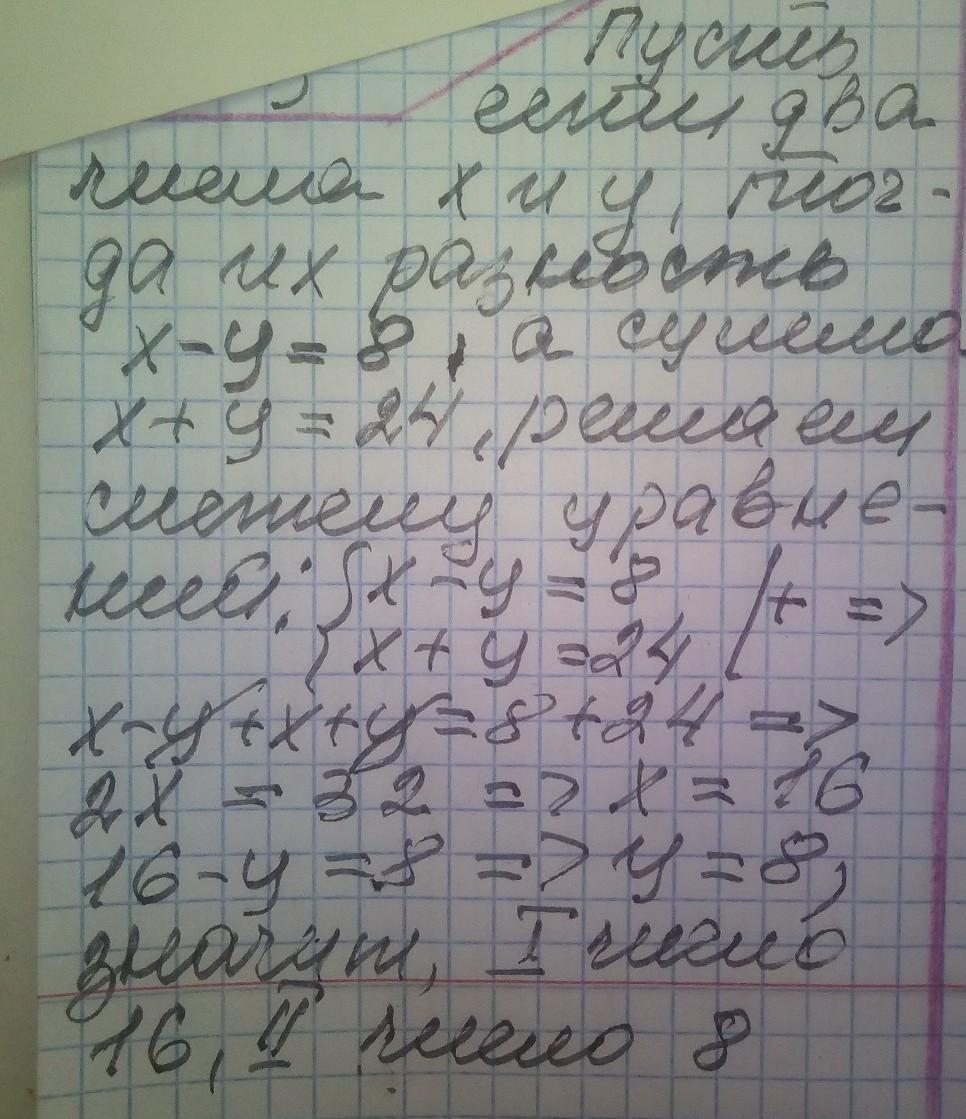 Пусть
есть два
числа x и y, тог-
да их разность
x-y=8, а сумма
x+y=24, решаем
систему уравне-
ний: {x-y=8 /+ =>
{x+y=24
x-y+x+y=8+24 =>
2x = 32 => x = 16
16-y=8 => y=8,
значит, I число
16, II число 8